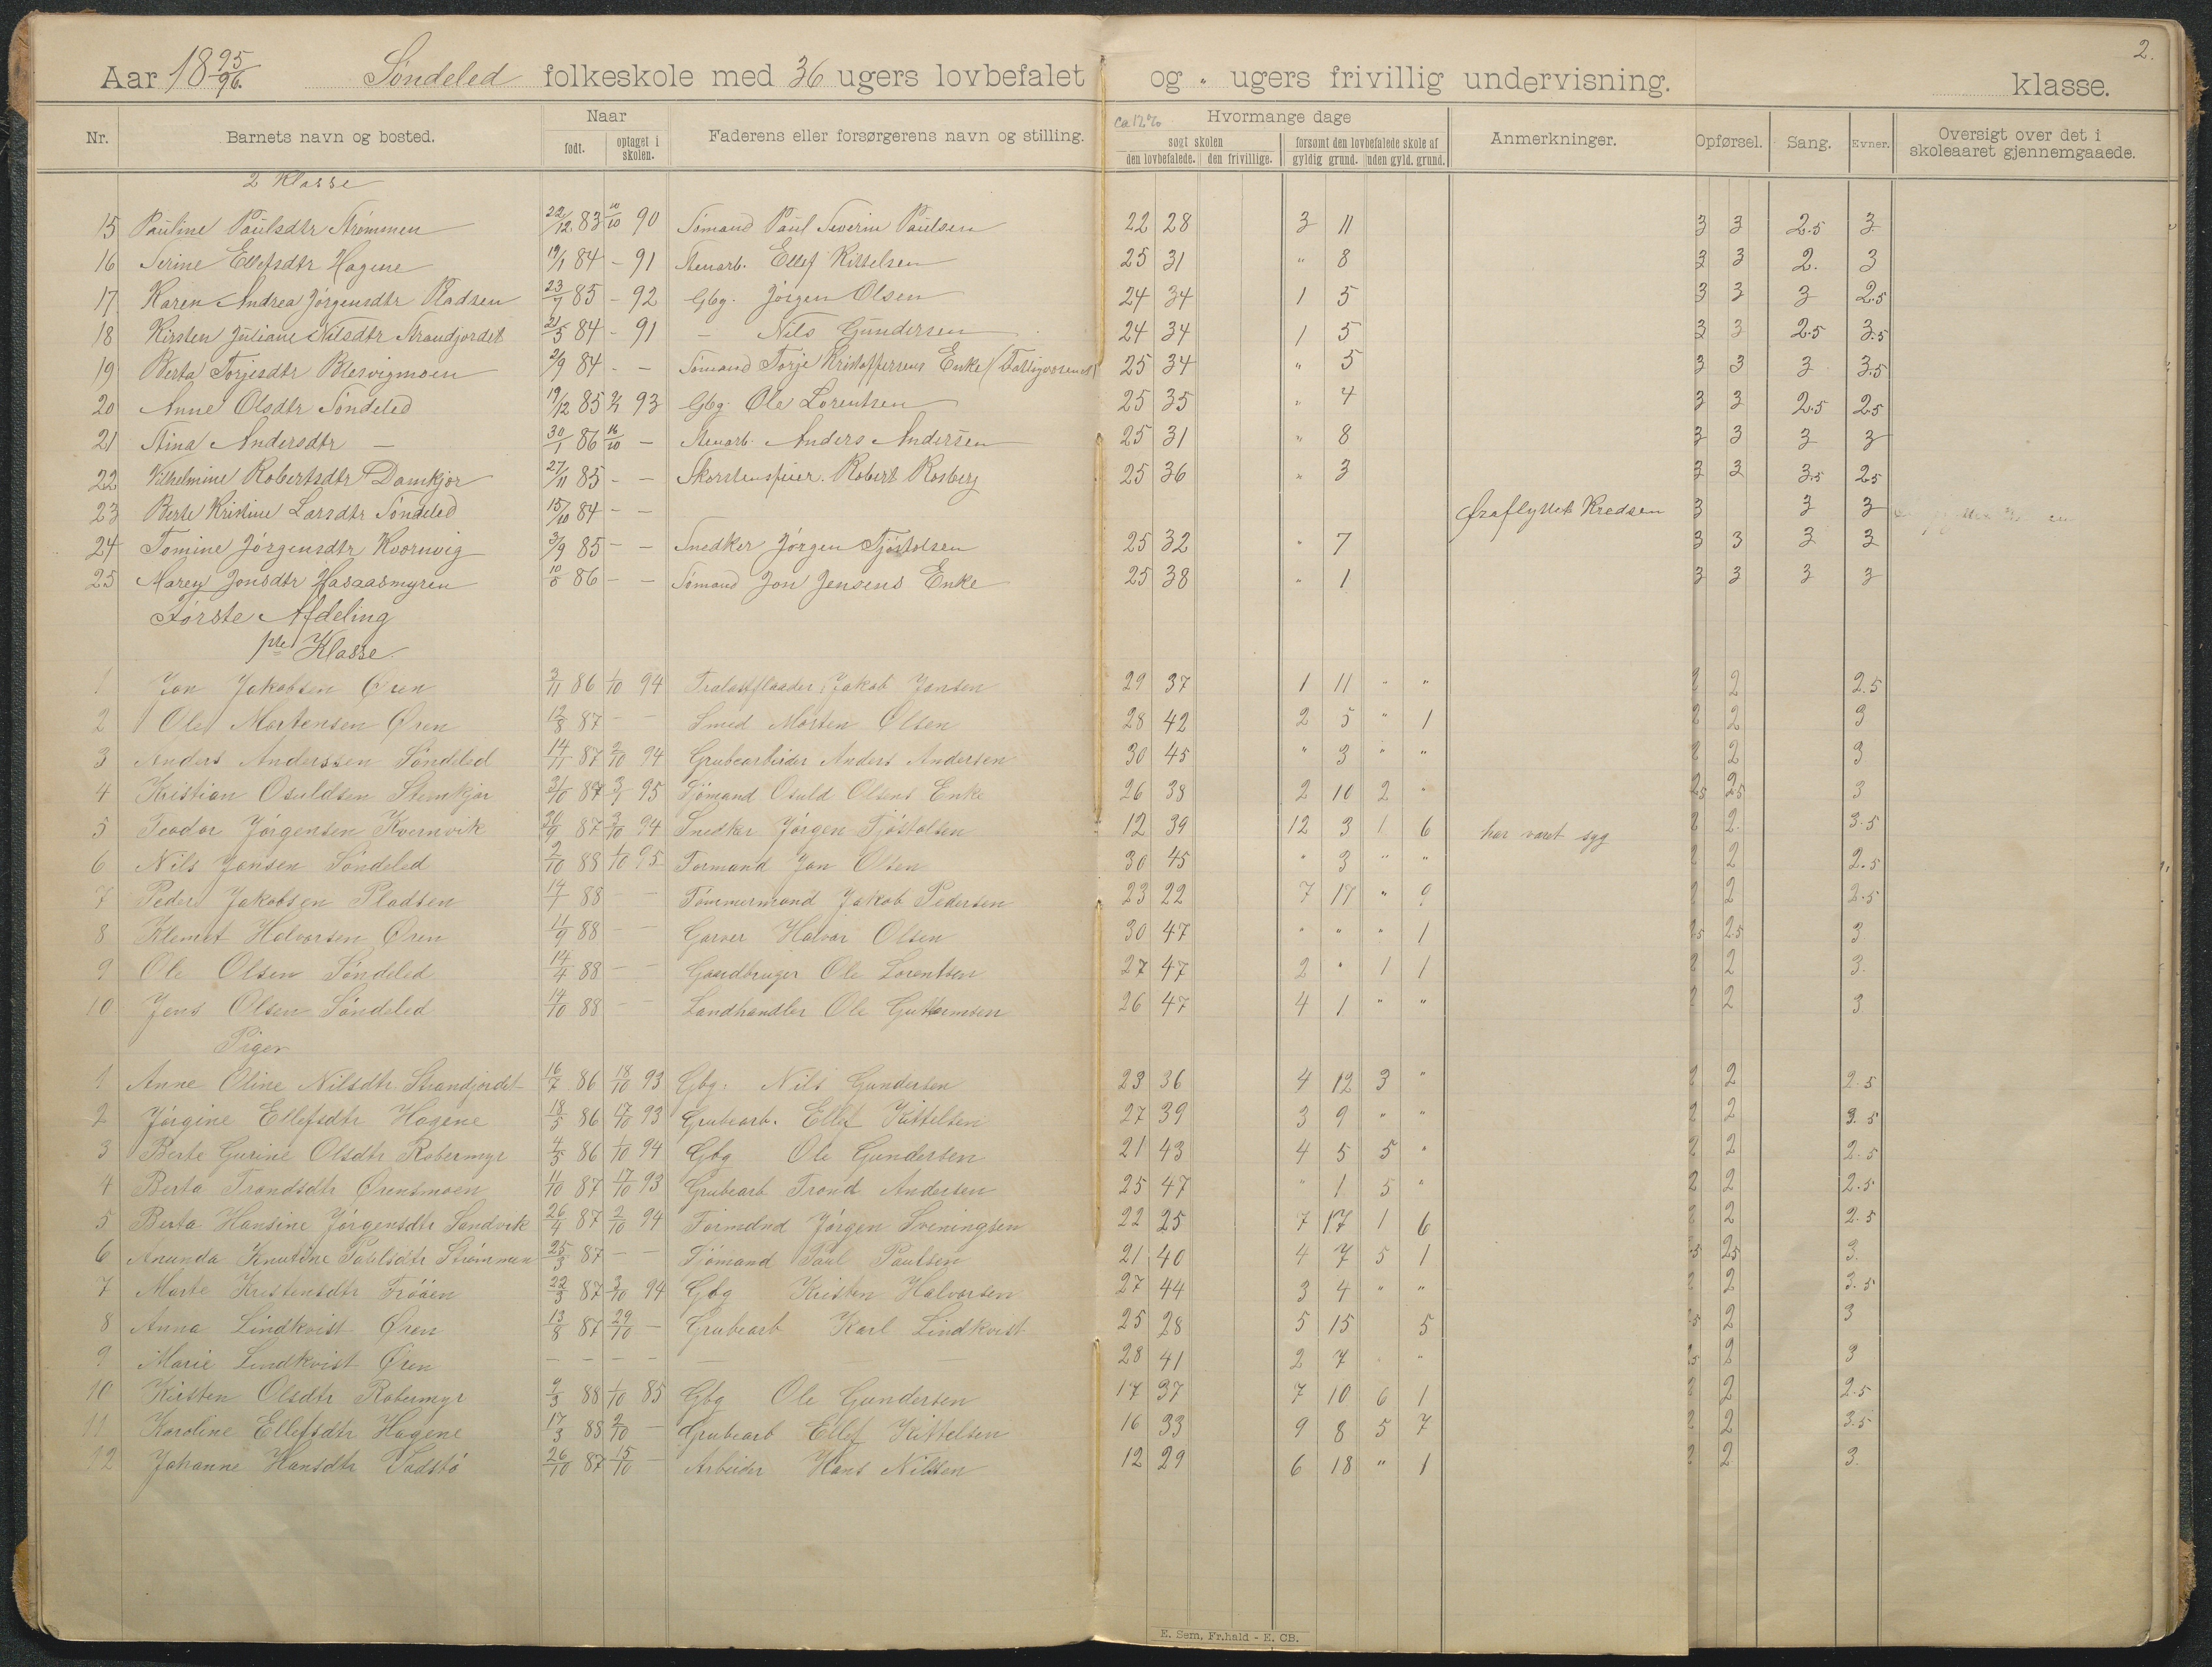 2.
Aar 1895/96. Søndeled folkeskole med 36 ugers lovbefalet og " ugers frivillig undervisning. klasse.
Nr. Barnets navn og bosted. Naar født. optaget i skolen. Faderens eller forsørgerens navn og stilling. ca 12 % Hvormange dage søgt skolen den lovbefalede. den frivillige. forsømt den lovbefalede skole af gyldig grund. uden gyld. grund. Anmerkninger. Opførsel. Sang. Evner. Oversigt over det i skoleaaret gjennemgaaede.
2 Klasse
15 Pauline Paulsdtr Strømmen 22/12 83 10/10 90 Sømand Paul Severin Paulsen 22 28 3 11 3 3 2.5 3
16 Serine Ellefsdtr Hagene 19/1 84 - 91 Stenarb. Ellef Kittelsen 25 31 " 8 3 3 2. 3
17 Karen Andrea Jørgensdtr Pladsen 23/7 85 - 92 Gbg. Jørgen Olsen 24 34 1 5 3 3 3 2.5
18 Kirsten Juliane Nilsdtr Strandjordet 21/5 84 - 91 - Nils Gundersen 24 34 1 5 3 3 2.5 3.5
19 Berta Torjesdtr Blesvigmoen 2/9 84 - - Sømand Torje Kristoffersens Enke (Fattigvæsenet) 25 34 " 5 3 3 3 3.5
20 Anne Olsdtr Søndeled 19/12 85 93 Gbg. Ole Lorentsen 25 35 " 4 3 3 2.5 2.5
21 Stina Andersdtr - 30/1 86 16/10 - Stenarb. Anders Andersen 25 31 " 8 3 3 3 3
22 Vilhelmine Robertsdtr Damkjør 27/11 85 - - Skorstensfeier. Robert Rosberg 25 36 " 3 3 3 3.5 2.5
23 Berte Kristine Larsdtr Søndeled 15/10 84 - - fraflyttet Kredsen 3 3 3
24 Tomine Jørgensdtr Kvernvig 3/9 85 - - Snedker Jørgen Tjøstolsen 25 32 " 7 3 3 3 3
25 Marey Jonsdtr Hasaasmyren 86 - - Sømand Jon Jensens Enke 25 38 " 1 3 3 3 3
Første Afdeling
1ste Klasse.
1 Jon Jakobsen Øren 3/11 86 1/10 94 Jakob Jonsen 29 37 1 11 " " 2 2 2.5
2 Ole Mortensen Øren 12/8 87 - - Smed Morten Olsen 28 42 2 5 " 1 2 2 3
3 Anders Anderssen Søndeled 14/11 87 2/10 94 Grubearbeider Anders Andersen 30 45 " 3 " " 2 2 3
4 Kristian Osuldsen Stemkjær 87 95 Sømand Osuld Olsens Enke 26 38 2 10 2 " 2.5 2.5 3
5 Teodor Jørgensen Kvernvik 30/9 87 3/10 94 Snedker Jørgen Tjøstolsen 12 39 12 3 1 6 har været syg 2 2. 3.5
6 Nils Jonsen Søndeled 2/10 88 1/10 95 Formand Jon Olsen 30 45 " 3 " " 2 2 2.5
7 Peder Jakobsen Pladsen 14/1 88 - - Tømmermand Jakob Pedersen 23 22 7 17 " 9 2 2 2.5
8 Klemet Halvorsen Øren 11/9 88 - - Garver Halvor Olsen 30 47 " " " 1 2.5 2.5 3
9 Ole Olsen Søndeled 14/4 88 - - Gaardbruger Ole Lorentsen 27 47 2 " 1 1 2 2 3.
10 Jens Olsen Søndeled 14/10 88 - - Landhandler Ole Guttormsen 26 47 4 1 " " 2 2 3
Piger
1 Anne Oline Nilsdtr. Strandjordet 16/7 86 18/10 93 Gbg: Nils Gundersen 23 36 4 12 3 " 2 2 2.5
2 Jørgine Ellefsdtr Hagene 18/5 86 17/10 93 Grubearb. Ellef Kittelsen 27 39 3 9 " " 2 2 3.5
3 Berte Gurine Olsdtr Robermyr 4/5 86 1/10 94 Gbg Ole Gundersen 21 43 4 5 5 " 2 2 2.5
4 Berta Trondsdtr Ørensmoen 11/10 87 17/10 93 Grubearb Trond Andersen 25 47 " 1 5 " 2 2 2.5
5 Berta Hansine Jørgensdtr Sandvik 26/4 87 2/10 94 Formand Jørgen Sveningsen 22 25 7 17 1 6 2 2 2.5
6 Ananda Knutine Paulsdtr Strømmen 25/3 87 - - Sømand Paul Paulsen 21 40 4 7 5 1 2.5 2.5 3.
7 Marte Kristensdtr Frøåen 22/3 87 3/10 94 Gbg Kristen Halvorsen 27 44 3 4 " " 2 2 3.5
8 Anna Lindkvist Øren 13/8 87 29/10 - Grubearb Karl Lindkvist 25 28 5 15 5 2.5 2 3
9 Marie Lindkvist Øren - - - - - 28 41 2 7 " 2.5 2 3
10 Kirsten Olsdtr Robermyr 9/3 88 1/10 85 Gbg Ole Gundersen 17 37 7 10 6 1 2 2 2.5
11 Karoline Ellefsdtr Hagene 17/3 88 2/10 - Grubearb Ellef Kittelsen 16 33 9 8 5 7 2 2 3.5
12 Johanne Hansdtr Vadstø 26/10 87 15/10 - Arbeider Hans Nilsen 12 29 6 18 " 1 2 2 3.
E. Sem, Fr.hald - E. CB.